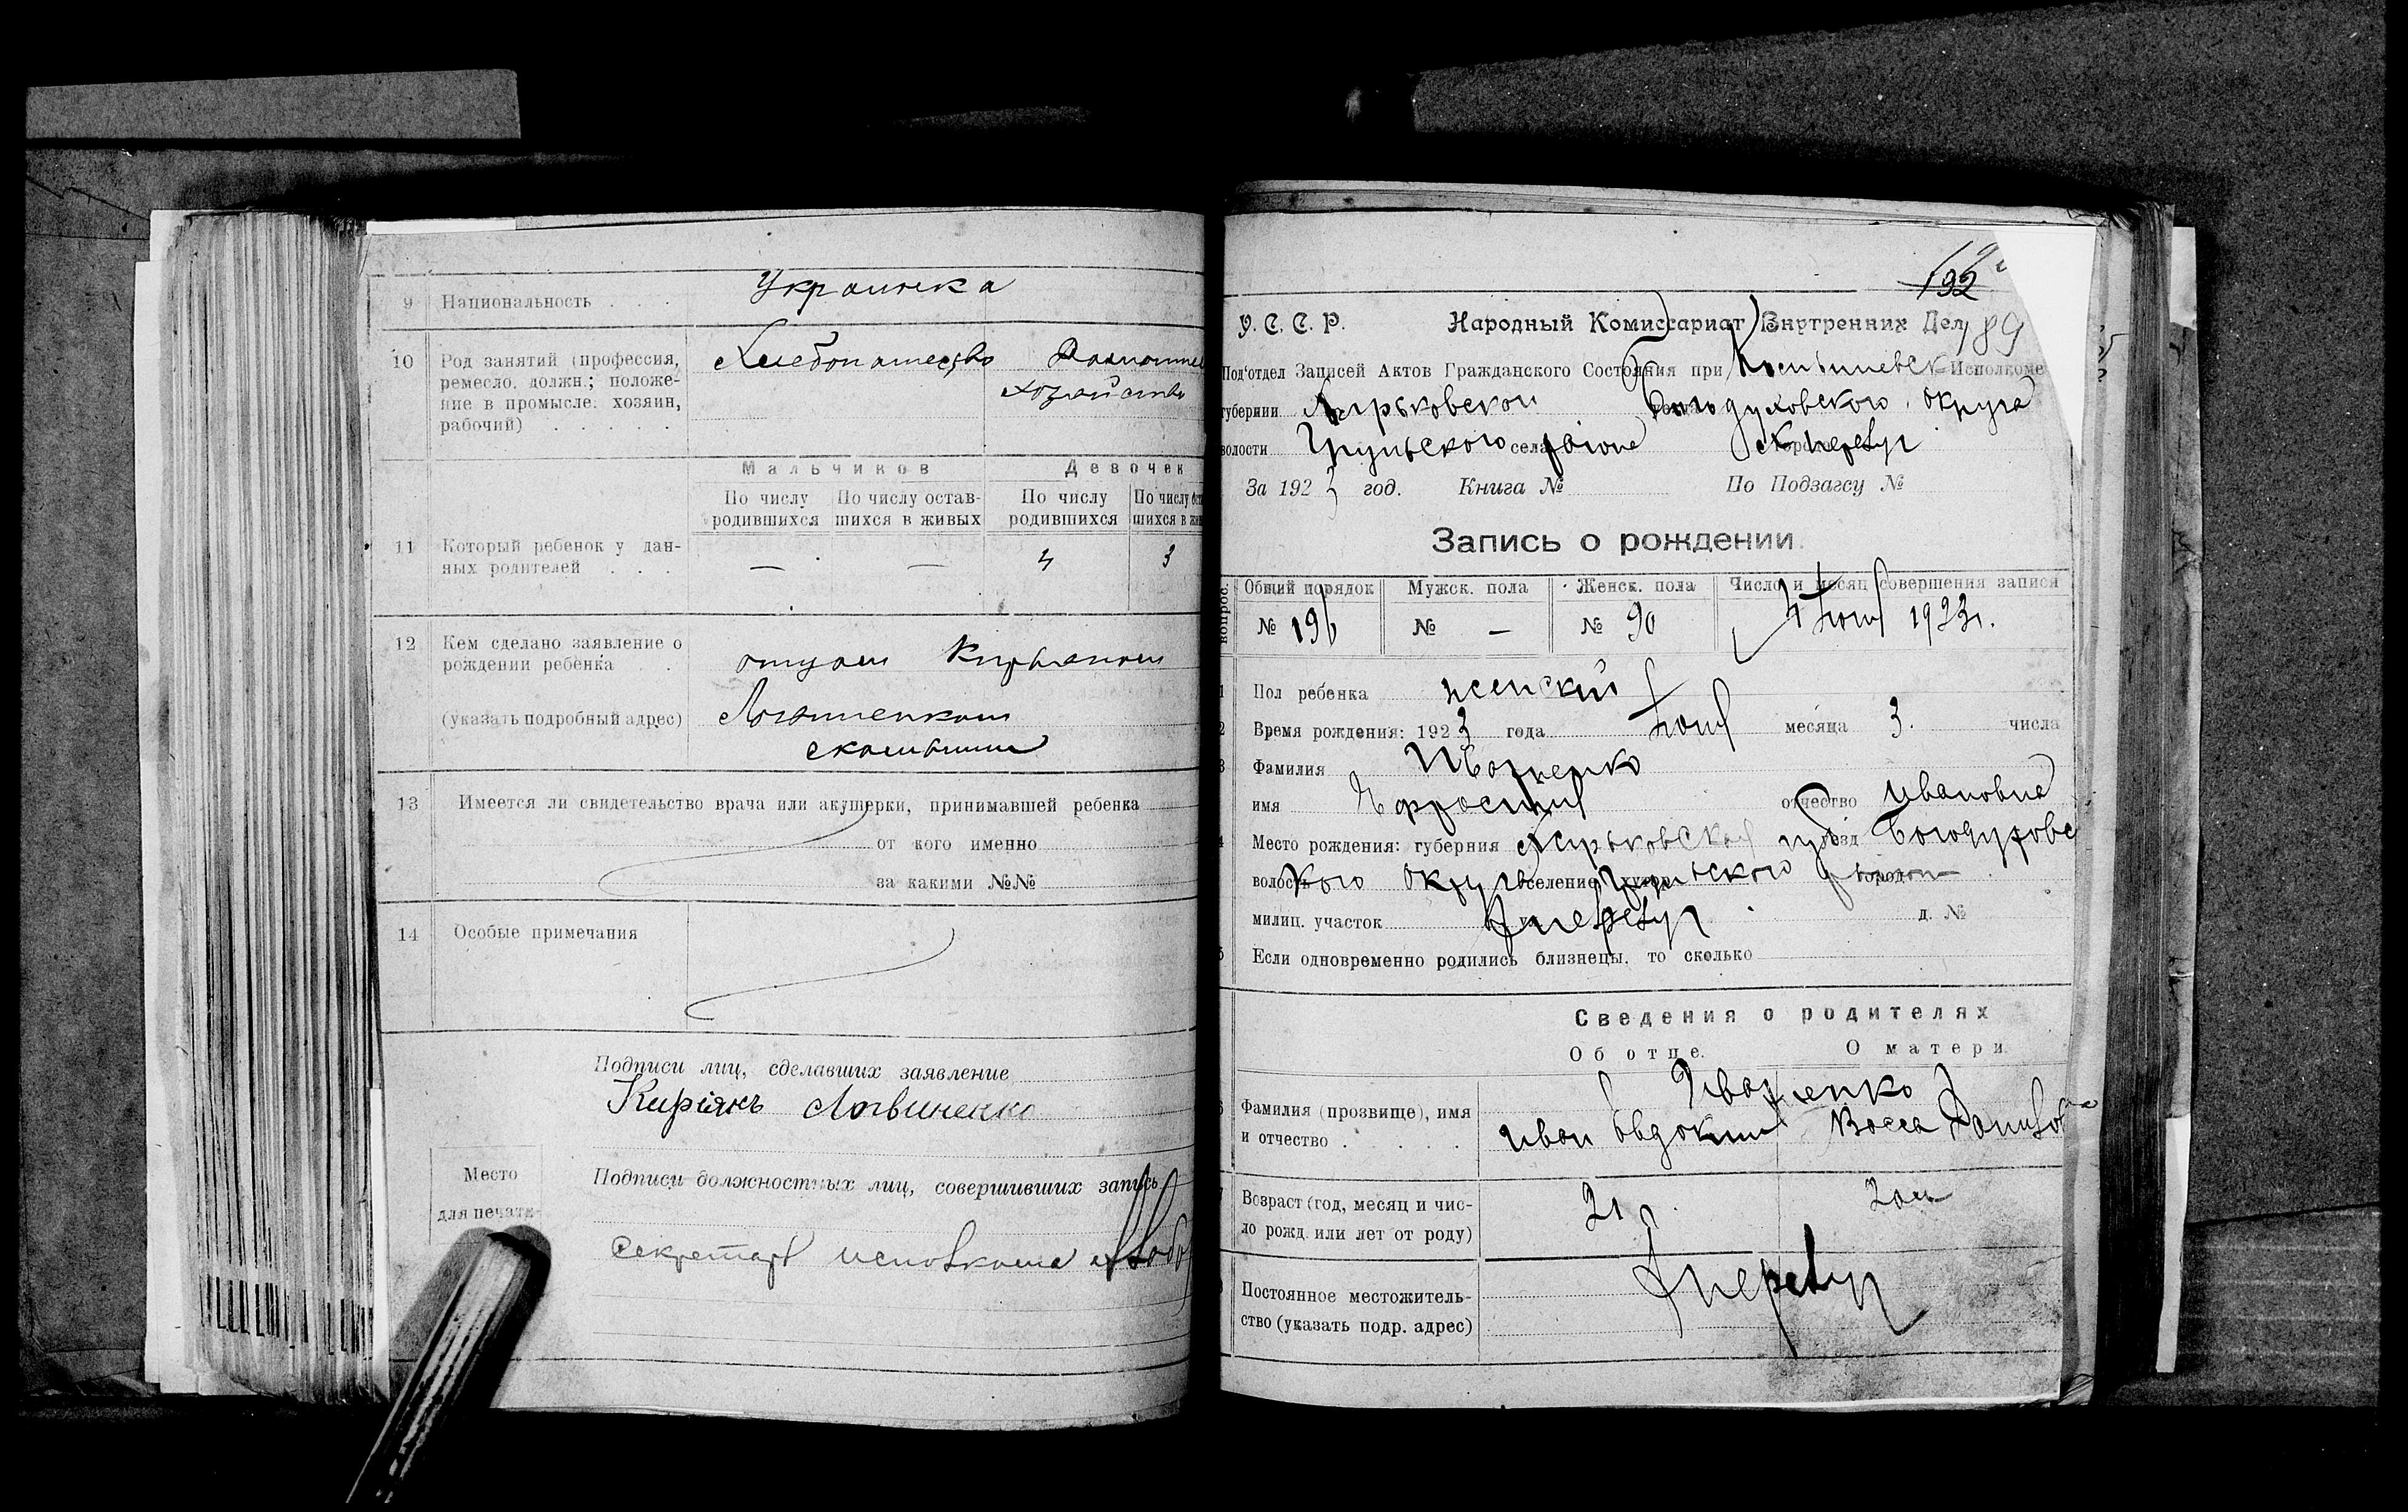 9 Национальность Украинка
10 Род занятий (профессия, Хлебопашество Домашнее
ремесло, должн.; положе- хозяйство
ние в промысле: хозяин,
рабочий)
Мальчиков Девочек
По числу По числу остав- По числу По числу
родившихся шихся в живых родившихся шихся в
11 Который ребенок у дан- — — 4 3
ных родителей
12 Кем сделано заявление о
рождении ребенка отцом Кирьяком
(указать подробный адрес)
13 Имеется ли свидетельство врача или акушерки, принимавшей ребенка
от кого именно
за какими №№
14 Особые примечания
Подписи лиц, сделавших заявление
Киріякъ Логвиненко
Место
для печати
Подписи должностных лиц, совершивших запись
Секретарь исполкома
192
189
У. С. С. Р. Народный Комиссариат Внутренних Дел
Под'отдел Записей Актов Гражданского Состояния при Исполкоме
губернии Харьковской Богодуховского округа
волости села района
За 1923 год. Книга № По Подзагсу №
Запись о рождении.
Общий порядок Мужск. пола Женск. пола Число и месяц совершения записи
№ 196 № — № 90 1923 г.
Пол ребенка женский
Время рождения: 1923 года месяца 3. числа
Фамилия Иващенко
имя Ефросинія отчество Ивановна
Место рождения: губерния Харьковская уезд Богодуховс
волость кого округа селение хутор город
милиц. участок д. №
Если одновременно родились близнецы, то сколько
Сведения о родителях
Об отце. О матери.
Иващенко
Фамилия (прозвище), имя
и отчество Иван Васса
Возраст (год, месяц и чис- 21 20
ло рожд. или лет от роду)
Постоянное местожитель-
ство (указать подр. адрес)